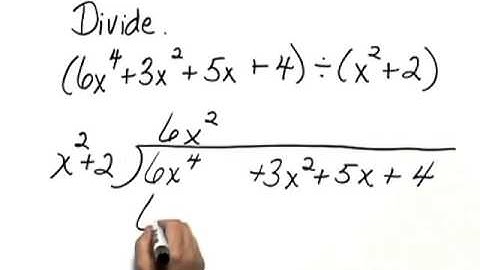 Divide.
(6x⁴+3x²+5x+4)÷(x²+2)
6x²
x²+2)6x⁴ +3x²+5x+4
(